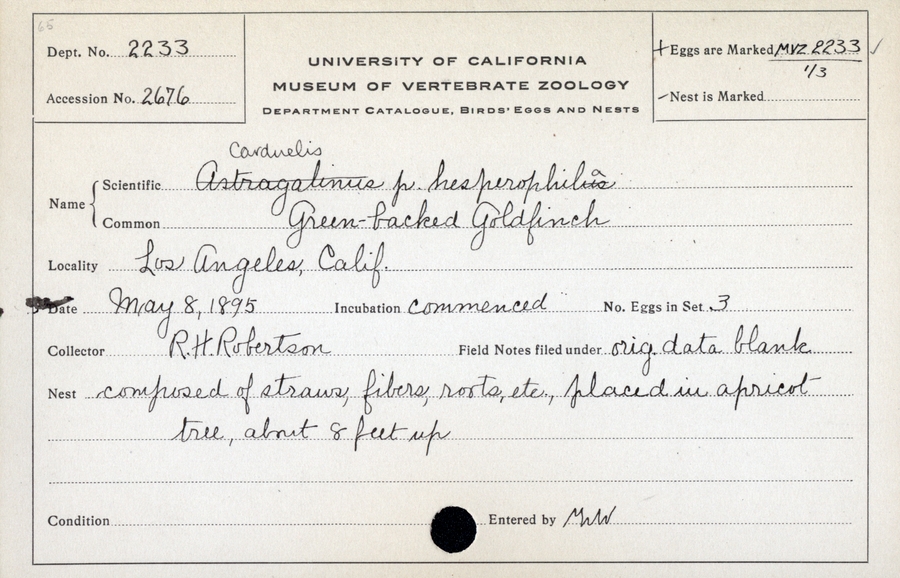 65
Dept. No. 2233
Accession No. 2676
UNIVERSITY OF CALIFORNIA
MUSEUM OF VERTEBRATE ZOOLOGY
DEPARTMENT CATALOGUE, BIRDS' EGGS AND NESTS
+Eggs are Marked MVZ 2233 ✓
1/3
-Nest is Marked
Carduelis
Name
Scientific Astragalinus p. hesperophilus a
Common Green-backed Goldfinch
Locality Los Angeles, Calif.
Date May 8, 1895 Incubation commenced No. Eggs in Set 3
Collector R.H. Robertson Field Notes filed under orig. data blank
Nest composed of straws, fibers, roots, etc., placed in apricot
tree, about 8 feet up
Condition Entered by